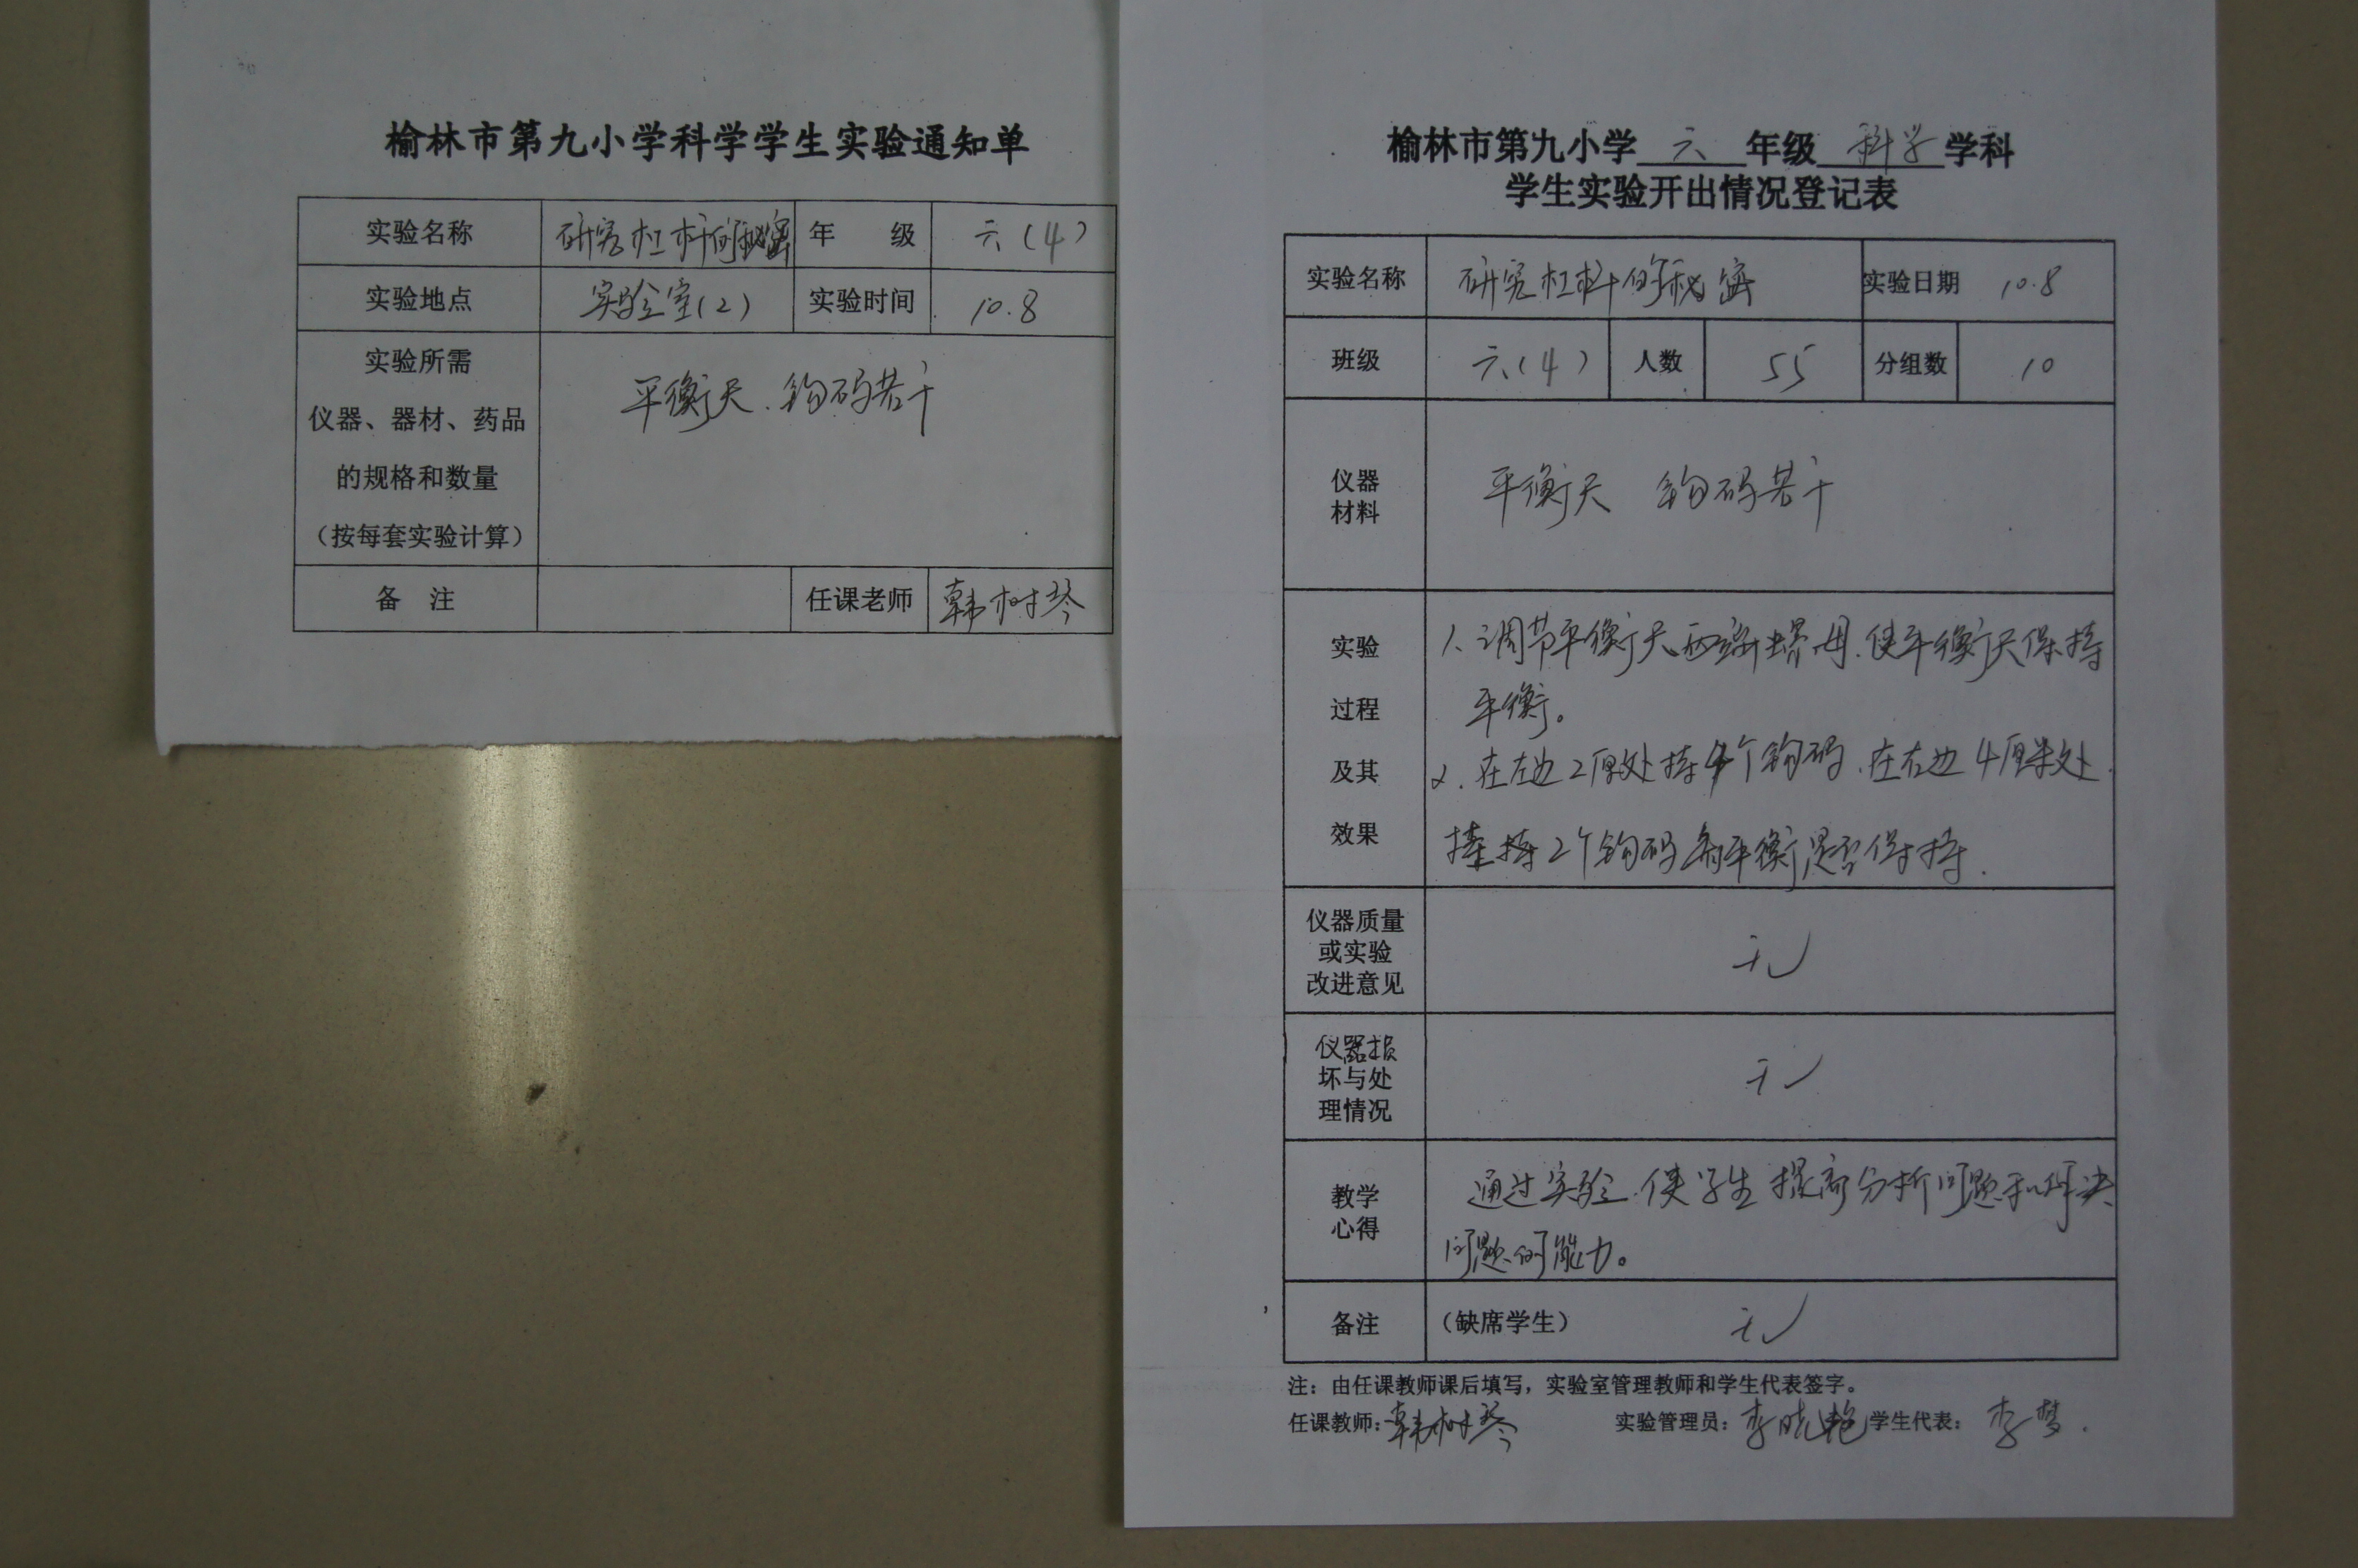 榆林市第九小学科学学生实验通知单
实验名称 研究杠杆的秘密 年 级 六(4)
实验地点 实验室(2) 实验时间 10.8
实验所需
仪器、器材、药品
的规格和数量
(按每套实验计算)
平衡尺、钩码若干
备 注 任课老师 韩树琴
榆林市第九小学 六 年级 科学 学科
学生实验开出情况登记表
实验名称 研究杠杆的秘密 实验日期 10.8
班级 六(4) 人数 55 分组数 10
仪器
材料
平衡尺 钩码若干
实验
过程
及其
效果
1、调节平衡尺两端螺母.使平衡尺保持
平衡。
2.在左边2厘处挂4个钩码.在右边4厘米处
挂2个钩码看平衡是否保持.
仪器质量
或实验
改进意见
无
仪器损
坏与处
理情况
无
教学
心得
通过实验.使学生提高分析问题和解决
问题的能力。
备注 (缺席学生) 无
注：由任课教师课后填写，实验室管理教师和学生代表签字。
任课教师：韩树琴 实验管理员：李晓艳 学生代表：李梦.